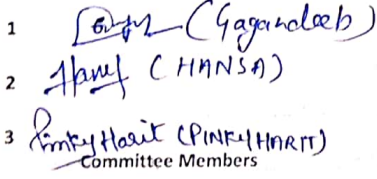 1 (Gagandeeb)
2 Hansa (HANSA)
3 Pinky Harit (PINKY HARIT)
Committee Members